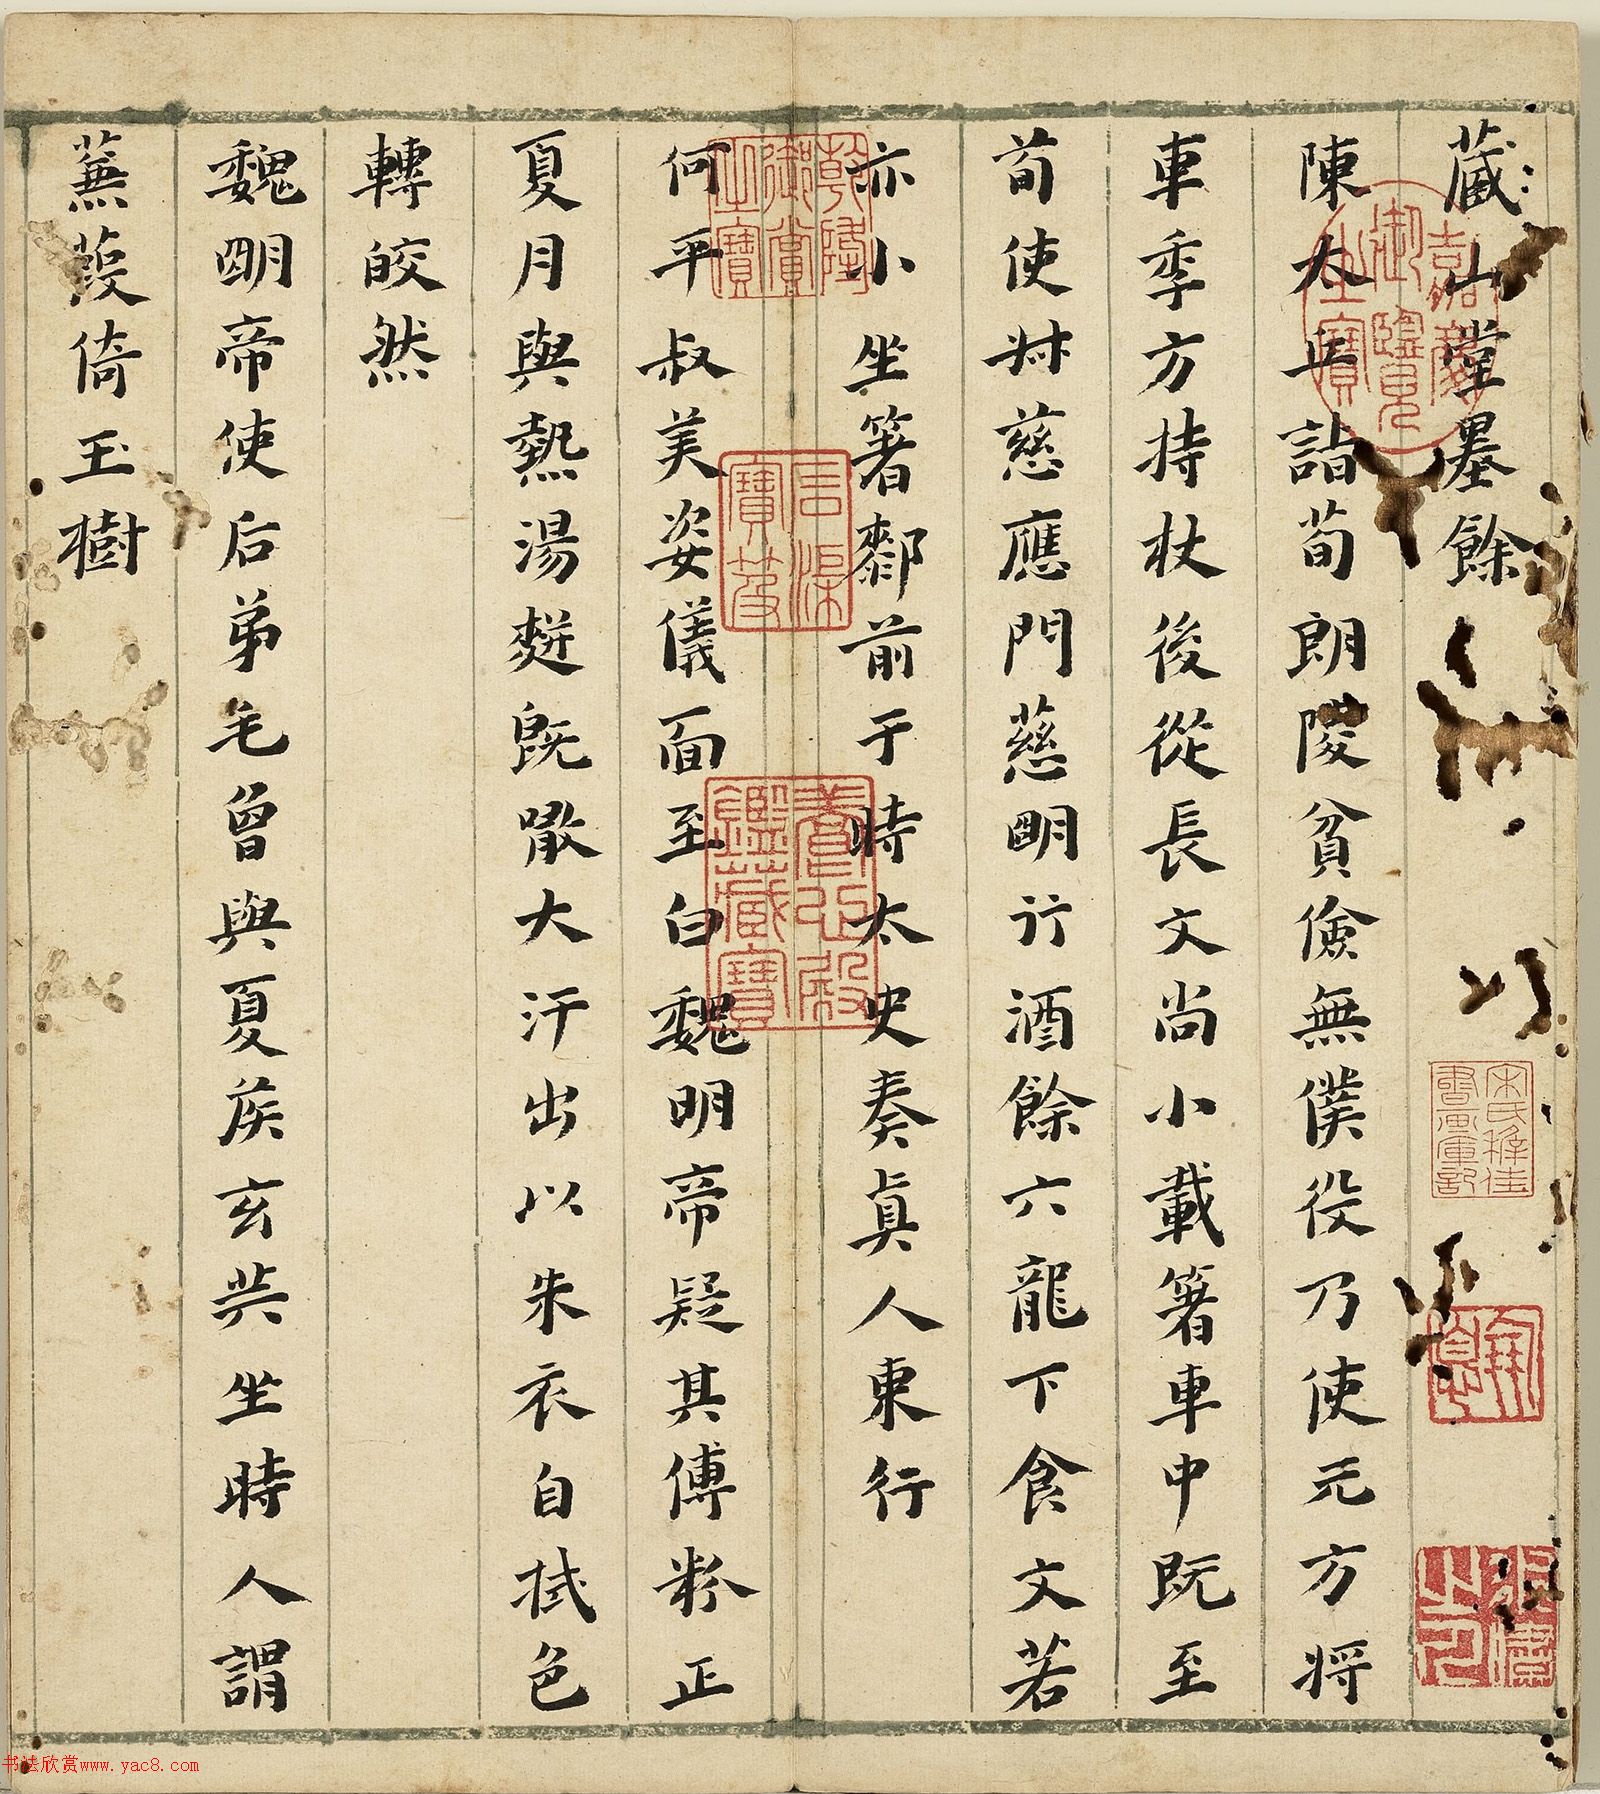 蔵山堂墨餘
陳太丘詣荀朗陵貧儉無僕役乃使元方将
車季方持杖後從長文尚小載箸車中既至
荀使叔慈應門慈明行酒餘六龍下食文若
亦小坐箸厀前于時太史奏真人東行
何平叔美姿儀面至白魏明帝疑其傅粉正
夏月與熱湯䴵既噉大汗出以朱衣自拭色
轉皎然
魏明帝使后弟毛曾與夏侯玄共坐時人謂
蒹葭倚玉樹
嘉慶御覽之寶
乾隆御賞之寶
石渠寶笈
養心殿鑑藏寶
书法欣赏www.yac8.com